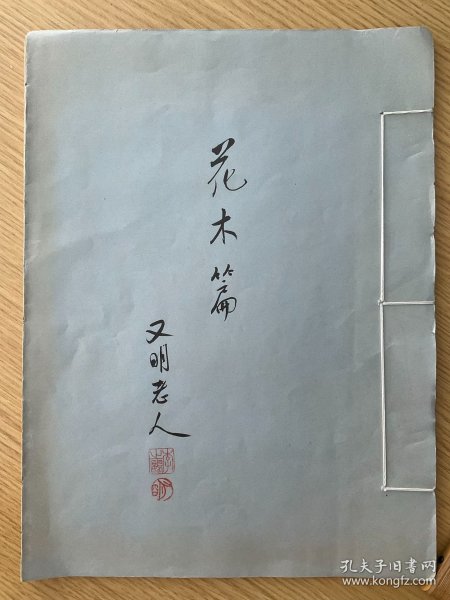 花木篇
又明老人
孔夫子旧书网
www.kongfz.com